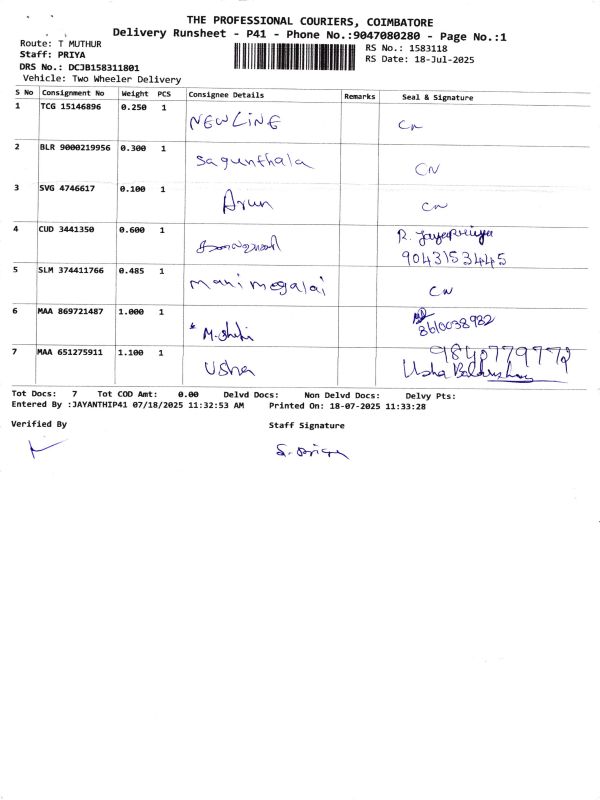 THE PROFESSIONAL COURIERS, COIMBATORE
Delivery Runsheet - P41 - Phone No.:9047080280 - Page No.:1
Route: T MUTHUR
RS No.: 1583118
Staff: PRIYA
RS Date: 18-Jul-2025
DRS No.: DCJB158311801
Vehicle: Two Wheeler Delivery
S No Consignment No Weight PCS Consignee Details Remarks Seal & Signature
1 TCG 15146896 0.250 1 NEWLINE CN
2 BLR 9000219956 0.300 1 Sagunthala CN
3 SVG 4746617 0.100 1 Arun CN
4 CUD 3441350 0.600 1 R. Jayapriya
9043153445
5 SLM 374411766 0.485 1 manimegalai CN
6 MAA 869721487 1.000 1 * M. 8610038982
7 MAA 651275911 1.100 1 Usha 9840779772
Usha
Tot Docs: 7 Tot COD Amt: 0.00 Delvd Docs: Non Delvd Docs: Delvy Pts:
Entered By :JAYANTHIP41 07/18/2025 11:32:53 AM Printed On: 18-07-2025 11:33:28
Verified By Staff Signature
S. Priya